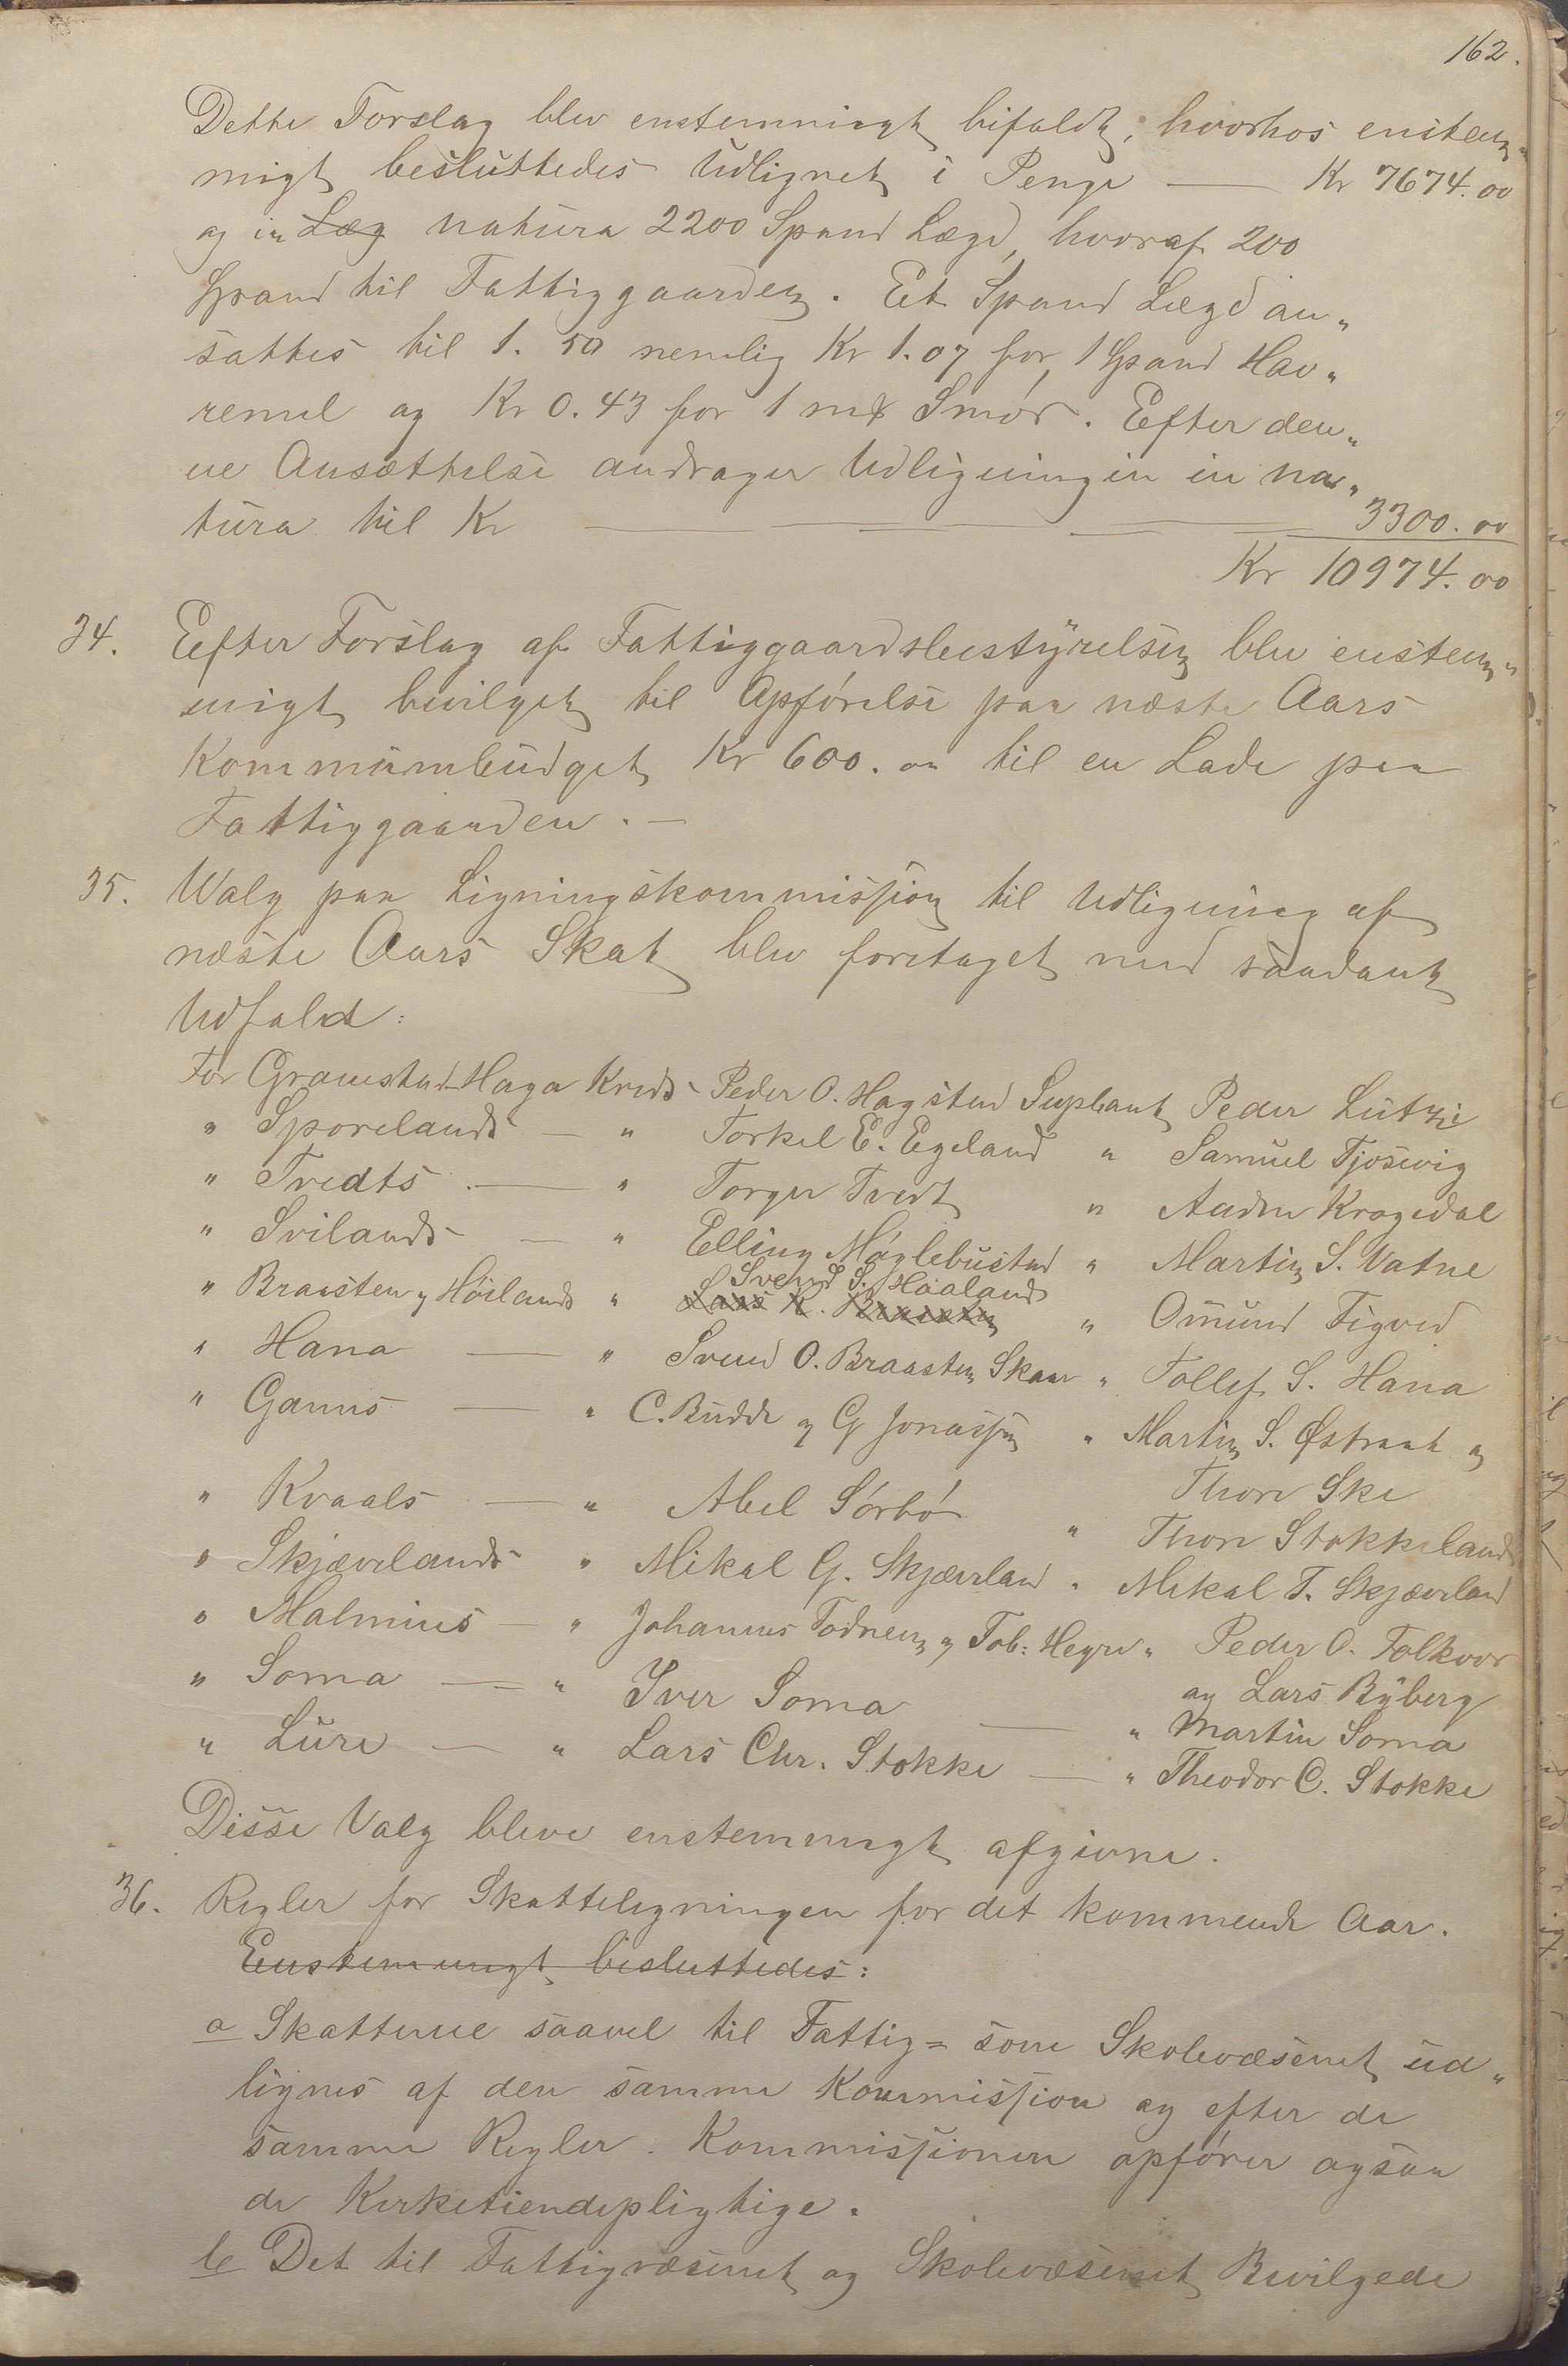 162.
Dette Forslag blev enstemmigt bifaldt, hvorhos enstem„
migt besluttedes Udlignet i Penge — Kr 7674.00
og in Læg natura 2200 Spand Lægd, hvoraf 200
Spand til Fattiggaarden. Et Spand Lægd an„
sattes til 1.50 nemlig Kr 1.07 for 1 Spand Hav„
remel og Kr 0.43 for 1 mk Smør. Efter den„
ne Ansættelse andrager Udligningen in na„
tura til Kr — — — — 3300.00
Kr 10974.00
34. Efter Forslag af Fattiggaardsbestyrelsen blev enstem„
migt bevilget til Opførelse paa næste Aars
Kommunebudget Kr 600.00 til en Lade paa
Fattiggaarden. —
35. Valg paa Ligningskommission til Udligning af
næste Aars Skat blev foretaget med saadant
Udfald:
For Gramstad-Haga Kreds - Peder O. Hogstad Supleant Peder Lutzi
„ Sporelands — „ Torkel E. Egeland „ Samuel Tjosevig
„ Tvedts — „ Torger Tvedt „ Auden Kragedal
„ Svilands — „ Elling Møglebustad „ Martin S. Vatne
Svend S. Høaland
„ Braasten og Høilands „ Lars K. Braasten „ Omund Figved
„ Hana — „ Svend O. Braasten Skaar „ Tollef S. Hana
„ Ganns — „ C. Budde og G Jonassen „ Martin S. Østraat og
Thore Ske
„ Kvaals — „ Abel Sørbø „ Thore Stokkeland
„ Skjævelands „ Mikal G. Skjæveland „ Mikal T. Skjæveland
„ Malmins — „ Johannes Todnem og Tob: Hegre „ Peder O. Folkvor
og Lars Ryberg
„ Soma — „ Iver Soma — „ Martin Soma
„ Lure — „ Lars Chr. Stokke — „ Theodor C. Stokke
Disse Valg bleve enstemmigt afgivne.
36. Regler for Skatteligningen for det kommende Aar.
Enstemmigt besluttedes:
a Skatterne saavel til Fattig= som Skolevæsenet ud„
lignes af den samme Kommission og efter de
samme Regler. Kommissionen opfører ogsaa
de Kirketiendepligtige.
b Det til Fattigvæsenet og Skolevæsenet Bevilgede